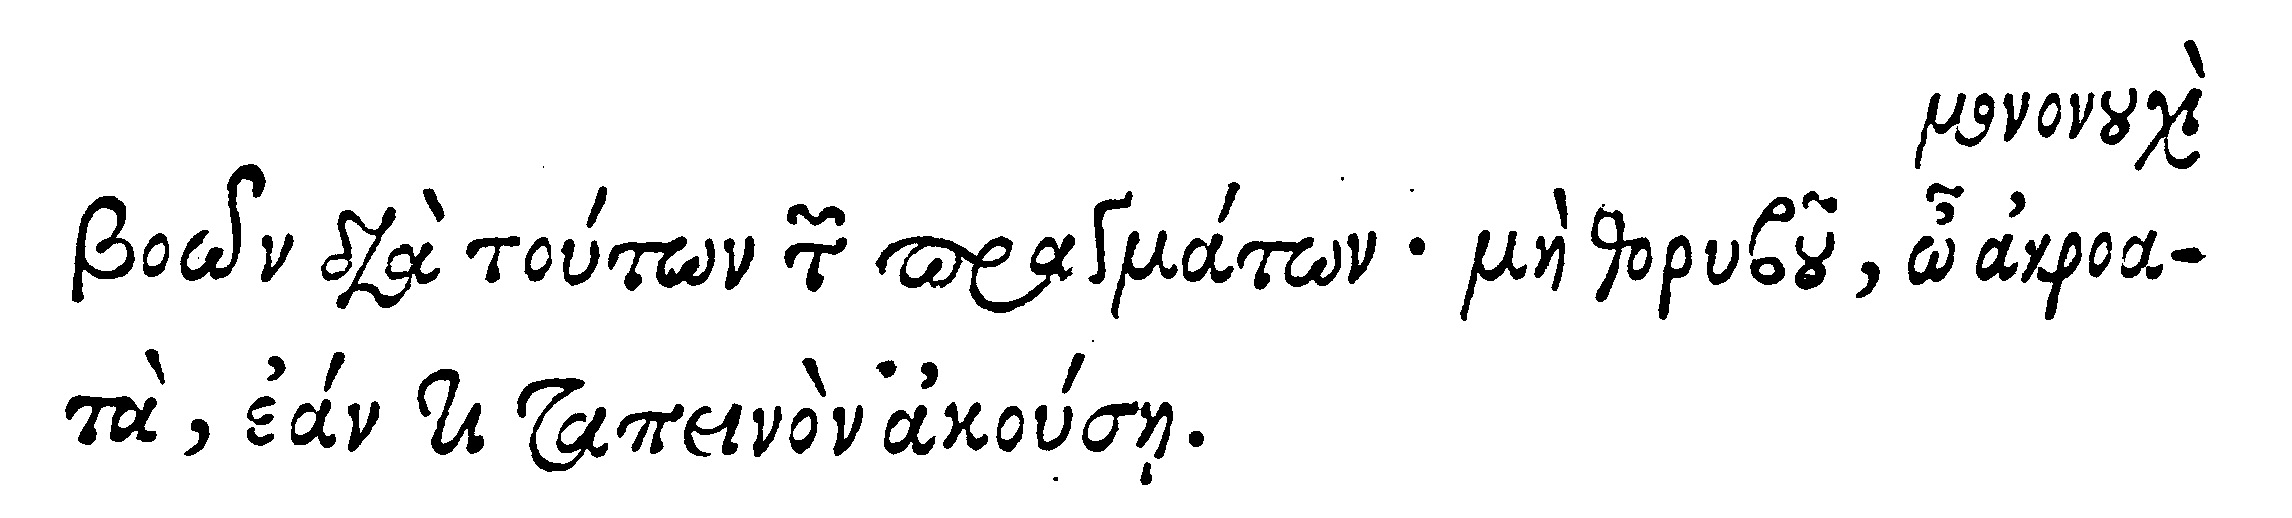 μονονουχὶ
βοῶν διὰ τούτων τῶν πραγμάτων· μὴ θορυβοῦ, ὦ ἀκροα-
τὰ, ἐάν τι ταπεινὸν ἀκούσῃ.